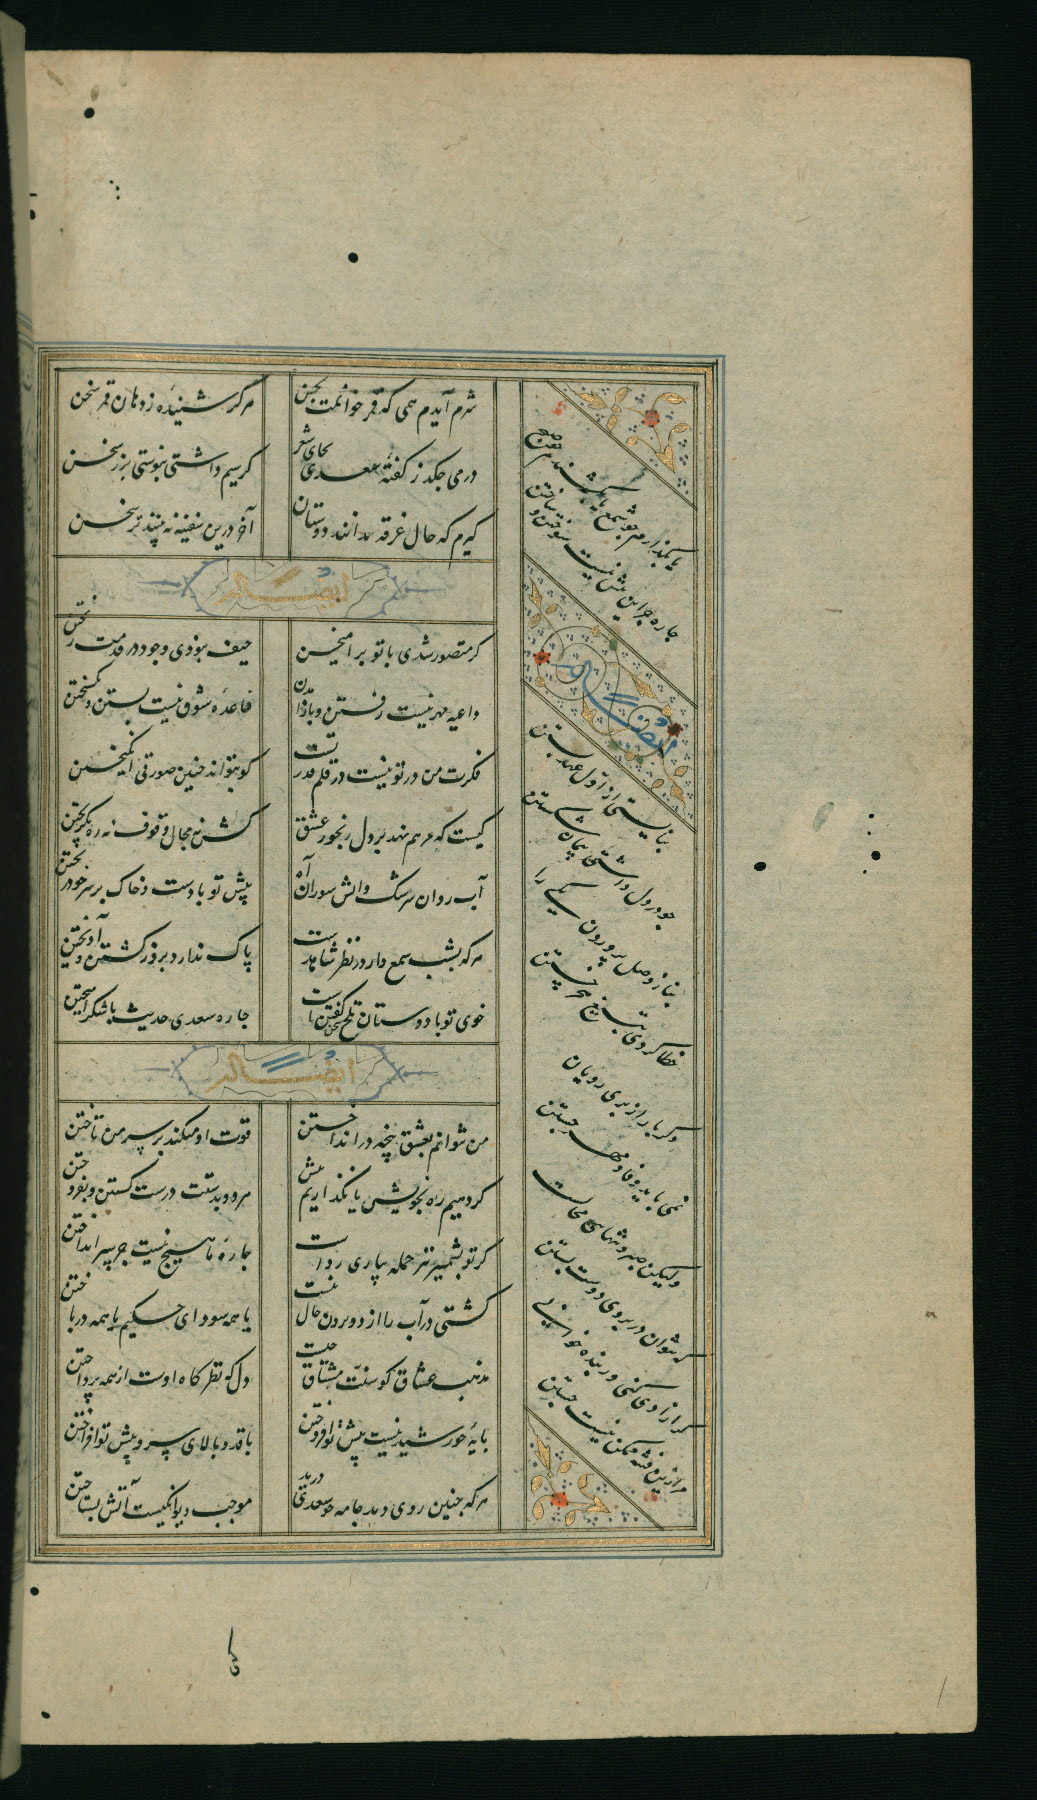 شرم آیدم همی که قمر خوانمت بحسن
هرگز شنیده‌ٔ ز دهان قمر سخن
درمی چکد ز گفتهٔ سعدی بجای شعر
گر سیم داشتی بنوشتی بزر سخن
گیرم که حال غرقه ندانند دوستان
آخر درین سفینه نه بینند تر سخن
ایضاً له
گر متصور شدی با تو برامیختن
حیف نبودی وجود در قدمت ریختن
داعیه مهر نیست رفتن و باز آمدن
قاعدهٔ شوق نیست بستن و بگسیختن
فکرت من در تو نیست در قلم قدرتست
کو بتواند چنین صورتی انگیختن
کیست که مرهم نهد بر دل رنجور عشق
کش نه مجال وقوف نه ره بگریختن
آب روان سرشک و آتش سوزان آه
پیش تو بادست و خاک بر سر خود بیختن
هر که بشب شمع دار در نظر شاهدست
باک ندارد بروز کشتن و آویختن
خوی تو با دوستان تلخ سخن گفتن است
چاره سعدی حدیث با شکر آمیختن
ایضاً له
من نتوانم بعشق پنجه در انداختن
قوت او میکند بر سر من تاختن
گر دهیم ره بخویش یا نگذاریم پیش
هر دو بدستت درست کشتن و بنواختن
گر تو بشمشیر تیز حمله بیاری رواست
چارهٔ ما هیچ نیست جز سپر انداختن
کشتی در آب را از دو برون حال نیست
یا همه سود ای حکیم یا همه درباختن
مذهب عشاق کو سنت مشتاق چیست
دل که نظرگاه اوست از همه پرداختن
پایهٔ خورشید نیست پیش تو افروختن
با قد و بالای سرو پیش تو افراختن
هر که چنین روی دید جامه چو سعدی درید
موجب دیوانگیست آتش بشناختن
یا بگذارم چو شمع یا بکشندم بصبح
چاره جز این بیش نیست سوختن و ساختن
ایضاً له
نبایستی از اول عهد بستن
چو در دل داشتی پیمان شکستن
بناز وصل پروردن یکی را
خطا کردی بتیغ هجر خستن
دگر بار از پری رویان
نمی باید وفا و مهر جستن
ولیکن صبر تنهایی محالست
که نتوان در بروی دوست بستن
گر آزادم کنی ور بنده خوانی
مرا زین قید ممکن نیست جستن